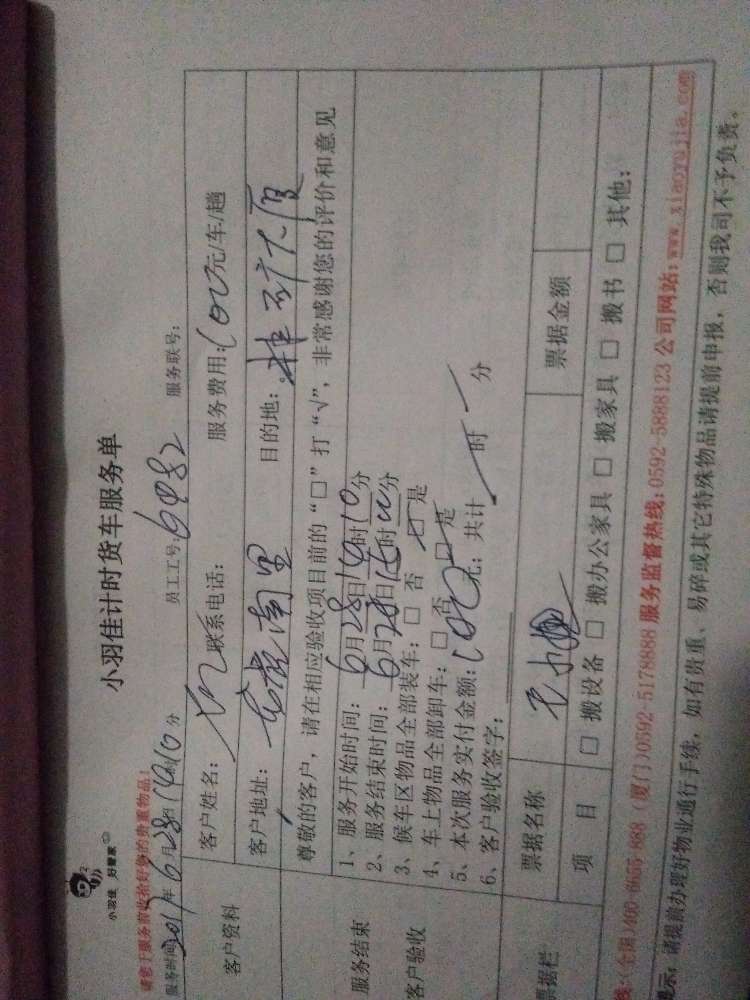 小羽佳 好管家
小羽佳计时货车服务单
请您于服务前收拾好您的贵重物品!
服务时间: 年6月28日14时10分 员工工号: 6982 服务联号:
客户资料
客户姓名: 联系电话: 服务费用: 100元/车/趟
客户地址: 南里 目的地: 大厦
尊敬的客户，请在相应验收项目前的“□”打“√”，非常感谢您的评价和意见
服务结束
客户验收
1、服务开始时间: 6月28日14时10分
2、服务结束时间: 6月28日 时 分
3、候车区物品全部装车: □ 否 □ 是
4、车上物品全部卸车: □ 否 □ 是
5、本次服务实付金额: 100元; 共计 时 分
6、客户验收签字:
票据栏
票据名称 票据金额
项 目 □ 搬设备 □ 搬办公家具 □ 搬家具 □ 搬书 □ 其他:
线:(全国)400-6655-888 (厦门)0592-5178888 服务监督热线:0592-5888123 公司网站:www.xiaoyujia.com
提示: 请提前办理好物业通行手续，如有贵重、易碎或其它特殊物品请提前申报，否则我司不予负责。